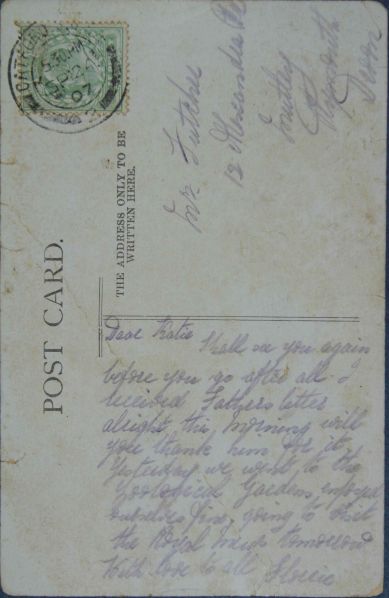 POST CARD.
THE ADDRESS ONLY TO BE
WRITTEN HERE.
5.30 PM
07
Mr Futcher
12 Alexandra
Mutley
Plymouth
Devon
Dear Katie
Shall see you again
before you go after all I
received Fathers letter
alright this morning will
you thank him for it
Yesterday we went to the
Zoological Gardens, enjoyed
ourselves fine, going to visit
the Royal tomorrow
With love to all Florrie